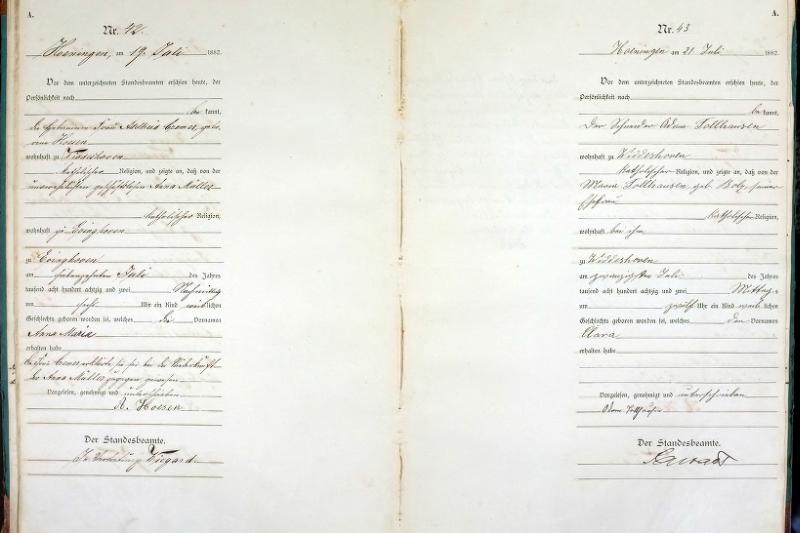 A.
Nr. 42.
Hoeningen, am 19. Juli 1882.
Vor dem unterzeichneten Standesbeamten erschien heute, der
Persönlichkeit nach
be kannt,
die Ehefrau
wohnhaft zu
katholischer Religion, und zeigte an, daß von der
unverehelichten geschäftslosen Anna Müller
katholischer Religion,
wohnhaft zu Evinghoven
zu Evinghoven
am siebenzehnten Juli des Jahres
tausend acht hundert achtzig und zwei Nachmittag
um Uhr ein Kind weib lichen
Geschlechts geboren worden sei, welches die Vornamen
Anna Maria
erhalten habe
der Anna Müller zugegen gewesen
Vorgelesen, genehmigt und unterschrieben
A. Hoesen
Der Standesbeamte.
In Vertretung Wiegard
A.
Nr. 43
Hoeningen am 21 Juli 1882.
Vor dem unterzeichneten Standesbeamten erschien heute, der
Persönlichkeit nach
be kannt,
Der Schneider Adam Follhausen
wohnhaft zu Widdeshoven
katholischer Religion, und zeigte an, daß von der
Maria Follhausen geb. Bolz, seiner
Ehefrau
katholischer Religion,
wohnhaft bei ihm
zu Widdeshoven
am zwanzigsten Juli des Jahres
tausend acht hundert achtzig und zwei Mittags
um zwölf Uhr ein Kind weib lichen
Geschlechts geboren worden sei, welches den Vornamen
Clara
erhalten habe
Vorgelesen, genehmigt und unterschrieben
Adam Follhausen
Der Standesbeamte.